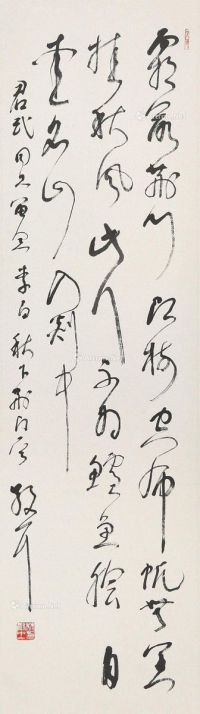 霜落荆门江树空布帆无恙
挂秋风此行不为鲈鱼脍自
爱名山入剡中
君武同志留念李白秋下荆门 散耳